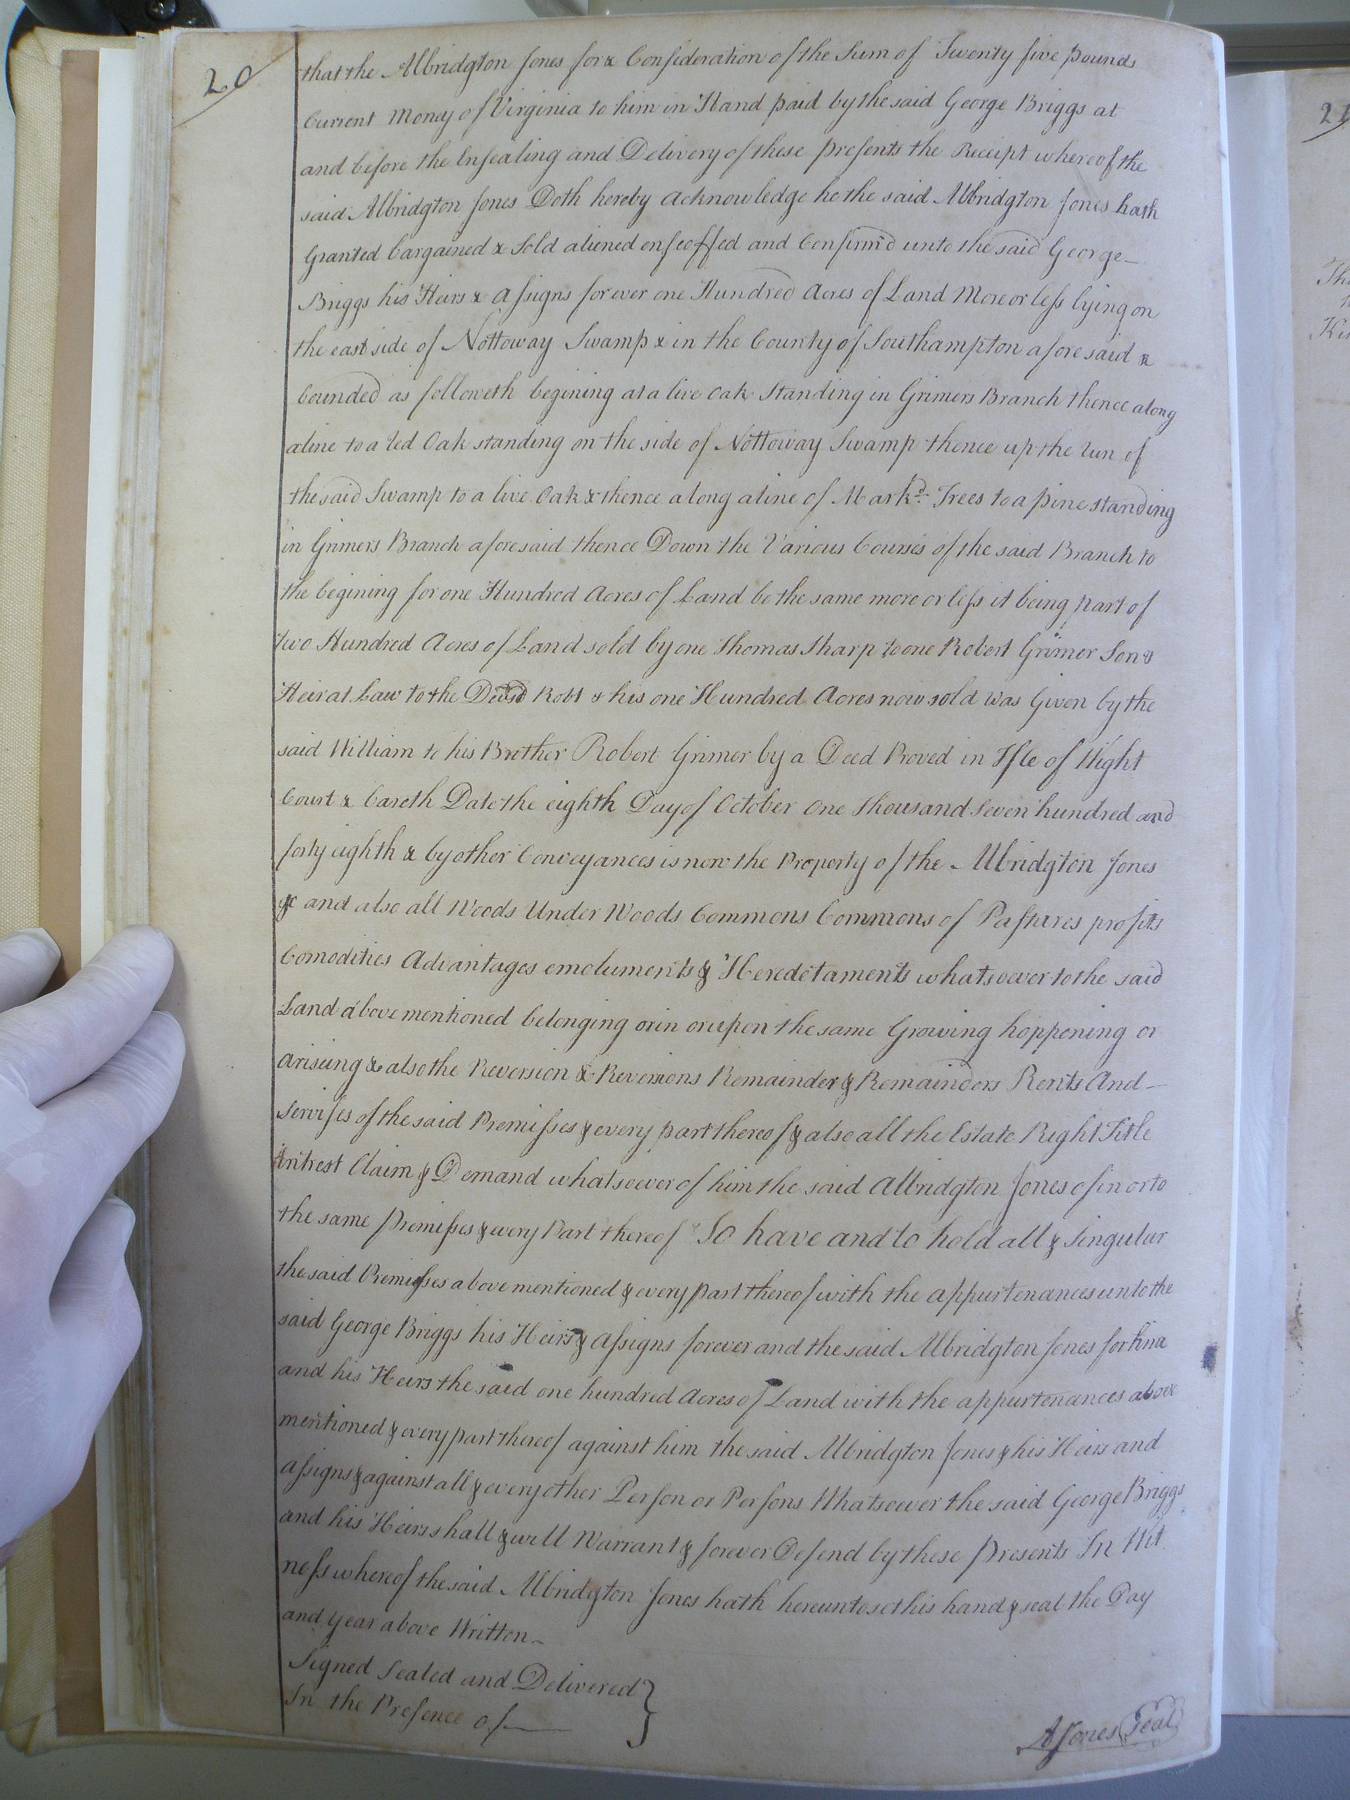 20
that the Albridgton Jones for & Consideration of the Sum of Twenty five pounds
Current Money of Virginia to him in Hand paid by the said George Briggs at
and before the Ensealing and Delivery of these presents the Receipt whereof the
said Albridgton Jones Doth hereby acknowledge he the said Albridgton Jones hath
Granted bargained & Sold aliened enfeoffed and Confirm'd unto the said George
Briggs his Heirs & Assigns for ever one Hundred Acres of Land More or less lying on
the east side of Nottoway Swamp & in the County of Southampton aforesaid &
bounded as followeth begining at a live Oak Standing in Grimers Branch thence along
a line to a red Oak standing on the side of Nottoway Swamp thence up the run of
the said Swamp to a live Oak & thence along a line of Markd. Trees to a pine standing
in Grimers Branch aforesaid thence Down the Various Courses of the said Branch to
the begining for one Hundred Acres of Land be the same more or less it being part of
two Hundred Acres of Land sold by one Thomas Sharp to one Robert Grimer Son &
Heir at Law to the Robt & this one Hundred Acres now sold was Given by the
said William to his Brother Robert Grimer by a Deed Proved in Isle of Wight
Court & beareth Date the eighth Day of October One thousand Seven hundred and
forty eighth & by other Conveyances is now the Property of the Albridgton Jones
&c and also all Woods Under Woods Commons Commons of Pastures profits
Comodities Advantages emoluments & Heredetaments whatsoever to the said
Land above mentioned belonging or in or upon the same Growing happening or
Ariseing & also the Reversion & Reversions Remainder & Remainders Rents And
Servises of the said Premisses & every part thereof & also all the Estate Right Title
Intrest Claim & Demand whatsoever of him the said Albridgton Jones of in or to
the same Premisses & every Part thereof To have and to hold all & Singular
the said Premisses above mentioned & every part thereof with the appurtenances unto the
said George Briggs his Heirs & Assigns forever and the said Albridgton Jones for him
and his Heirs the said one hundred Acres of Land with the appurtenances above
mentioned & every part thereof against him the said Albridgton Jones & his Heirs and
Assigns & against all & every other Person or Persons Whatsoever the said George Briggs
and his Heirs shall & will Warrant & forever Defend by these Presents In Wit
ness whereof the said Albridgton Jones hath hereunto set his hand & seal the Day
and Year above Written
Signed Sealed and Delivered
In the Presence of
A Jones Seal
21